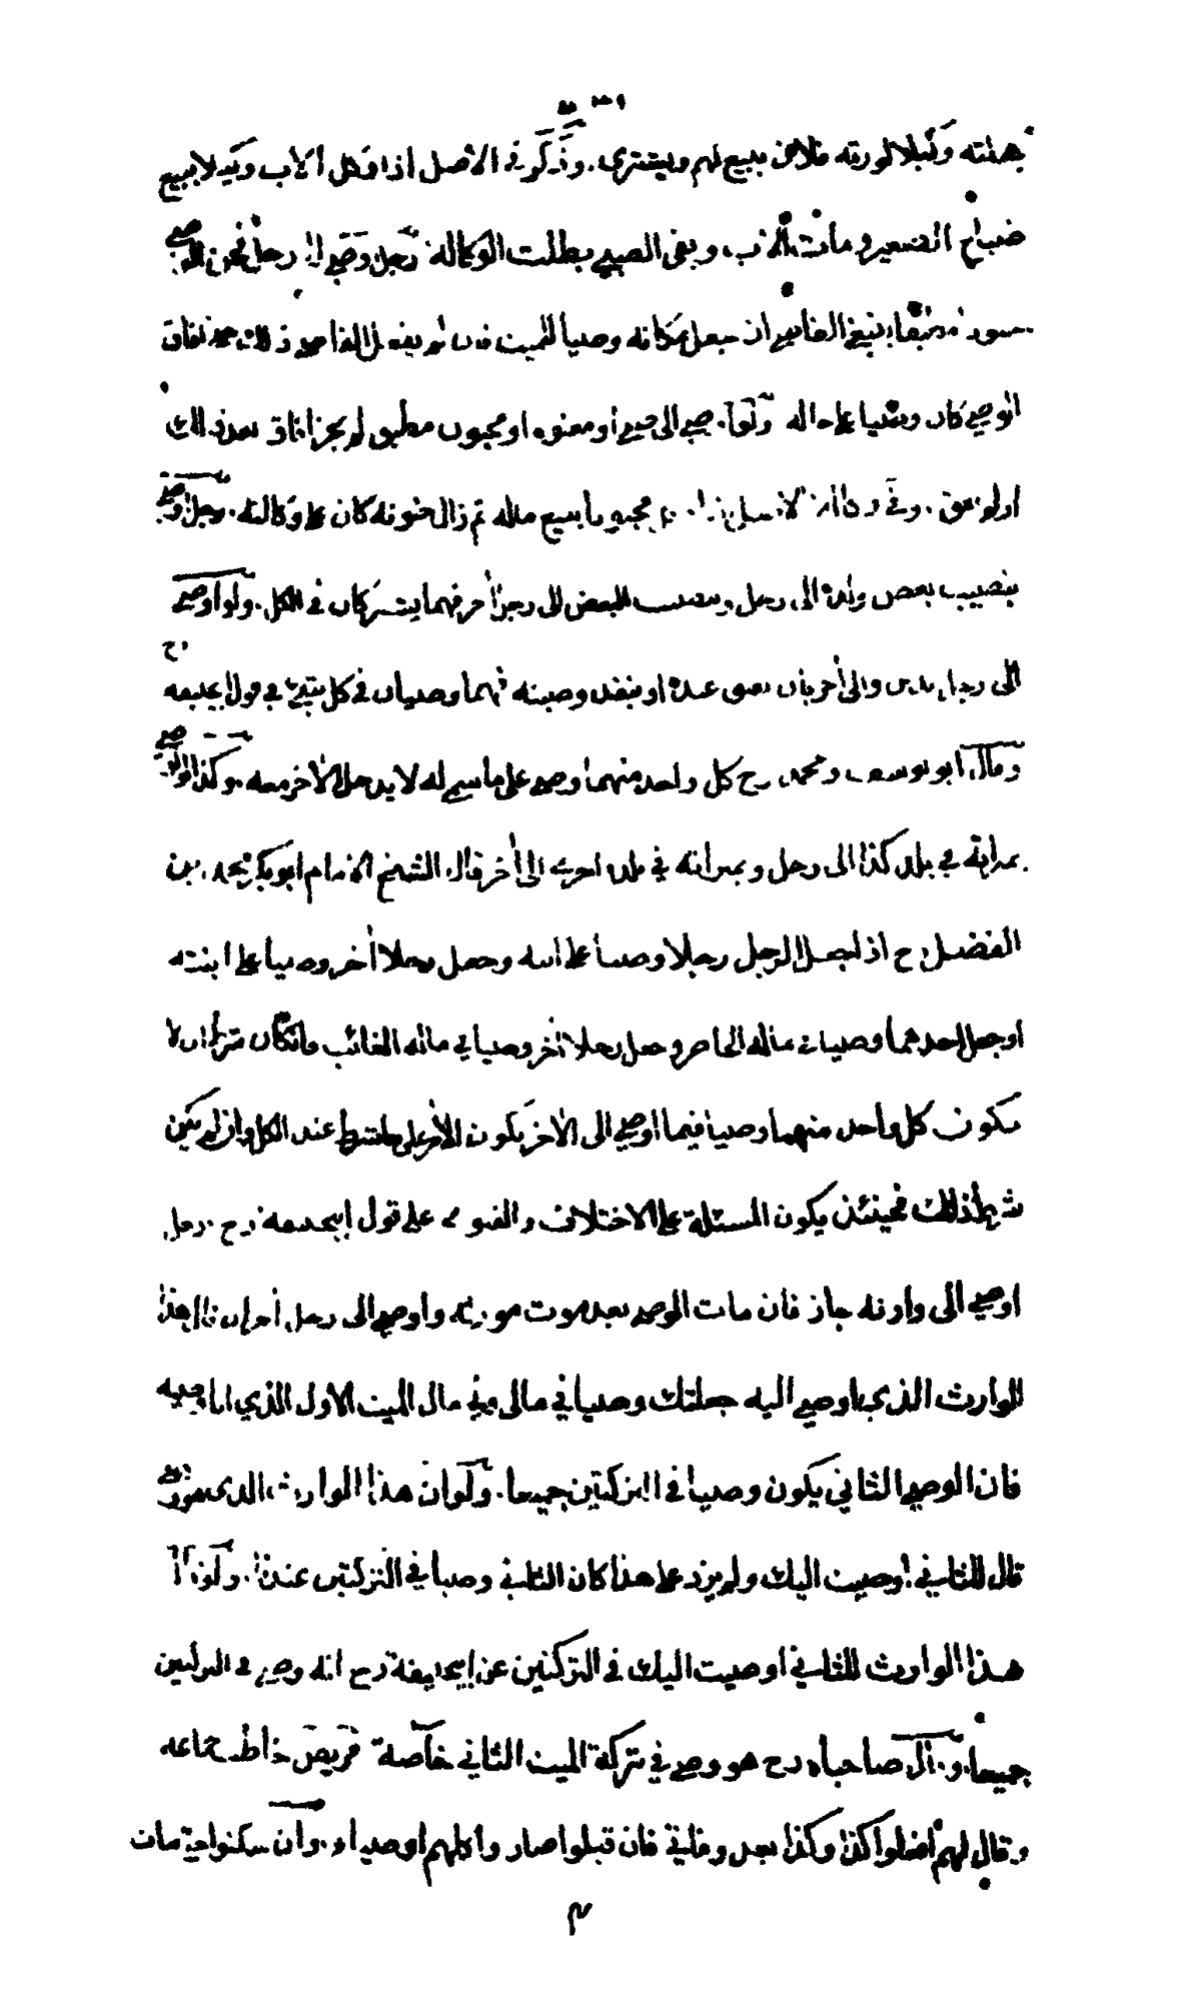 وكيلا لورثته فلان يبيع لهم ويشتري. وذكر في الأصل اذا وكل الأب وكيلا ببيع
ضياع الصغير ومات الأب وبقى الصبي بطلت الوكالة رجل وصى الى رجل فجن الوصي
ينبغي للقاضي ان يجعل مكانه وصيا للميت فان لم يفعل القاضي ذلك حتى افاق
الوصي كان وصيا على حاله ولو اوصى الى صبي او معتوه او مجنون مطبق لم يجز افاق بعد ذلك
اولم يفق. وفي الأصل مجنونا ببيع ماله ثم زال جنونه كان على وكالته. رجل اوصى
بنصيب بعض ولده الى رجل وبنصيب البعض الى رجل أخر فهما يشتركان في الكل. ولو اوصى
الى رجل بدين والى أخر بان يعتق عبده او ينفذ وصيته فهما وصيان في كل شيء في قول ابيحنيفه رح
وقال ابو يوسف ومحمد رح كل واحد منهما وصى على ما سمى له لا يدخل الأخر معه. وكذا لو اوصى
بميراثه في بلد كذا الى رجل وبميراثه في بلدة اخرى الى أخر قال الشيخ الامام ابو بكر محمد بن
الفضل رح اذا جعل الرجل رجلا وصيا على ابنه وجعل رجلا أخر وصيا على ابنته
او جعل احدهما وصيا في ماله الحاضر وجعل رجلا أخر وصيا في ماله الغائب فان كان شرط ان لا
يكون كل واحد منهما وصيا فيما اوصى الى الأخر يكون الأمر على ما شرط عند الكل وان لم يكن
شرط ذلك فحينئذ يكون المسئلة على الاختلاف والفتوى على قول ابيحنيفه رح. رجل
اوصى الى وارثه جاز فان مات الوصى بعد موت مورثه واوصى الى رجل أخر ان قال هذا
الوارث الذي اوصى اليه جعلتك وصيا في مالى وفي مال الميت الاول الذي انا وصيه
فان الوصي الثاني يكون وصيا في التركتين جميعا. ولو ان هذا الوارث الذى هو وصى
قال للثاني أوصيت اليك ولم يزد على هذا كان الثاني وصيا في التركتين عندنا. ولو قال
هذا الوارث للثاني اوصيت اليك في التركتين عن ابيحنيفة رح انه وصى في التركتين
جميعا. وقال صاحباه رح هو وصى في تركة الميت الثاني خاصة مريض خاطب جماعه
وقال لهم افعلوا كذا وكذا بعد وفاتي فان قبلوا صاروا كلهم اوصياء. وان سكتوا حتى مات